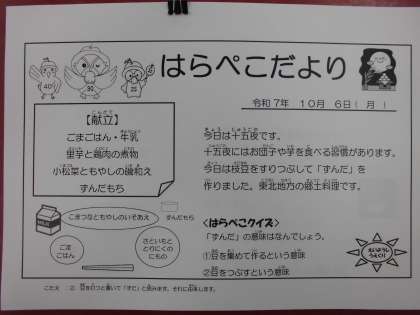 はらぺこだより
40
30
25
令和7年 10月 6日(月)
【献立】
ごまごはん・牛乳
里芋と鶏肉の煮物
小松菜ともやしの磯和え
ずんだもち
今日は十五夜です。
十五夜にはお団子や芋を食べる習慣があります。
今日は枝豆をすりつぶして「ずんだ」を
作りました。東北地方の郷土料理です。
こまつなともやしのいそあえ
ずんだもち
ごま
ごはん
さといもと
とりにくの
にもの
<はらぺこクイズ>
「ずんだ」の意味はなんでしょう。
①豆を集めて作るという意味
②豆をつぶすという意味
こたえ:②